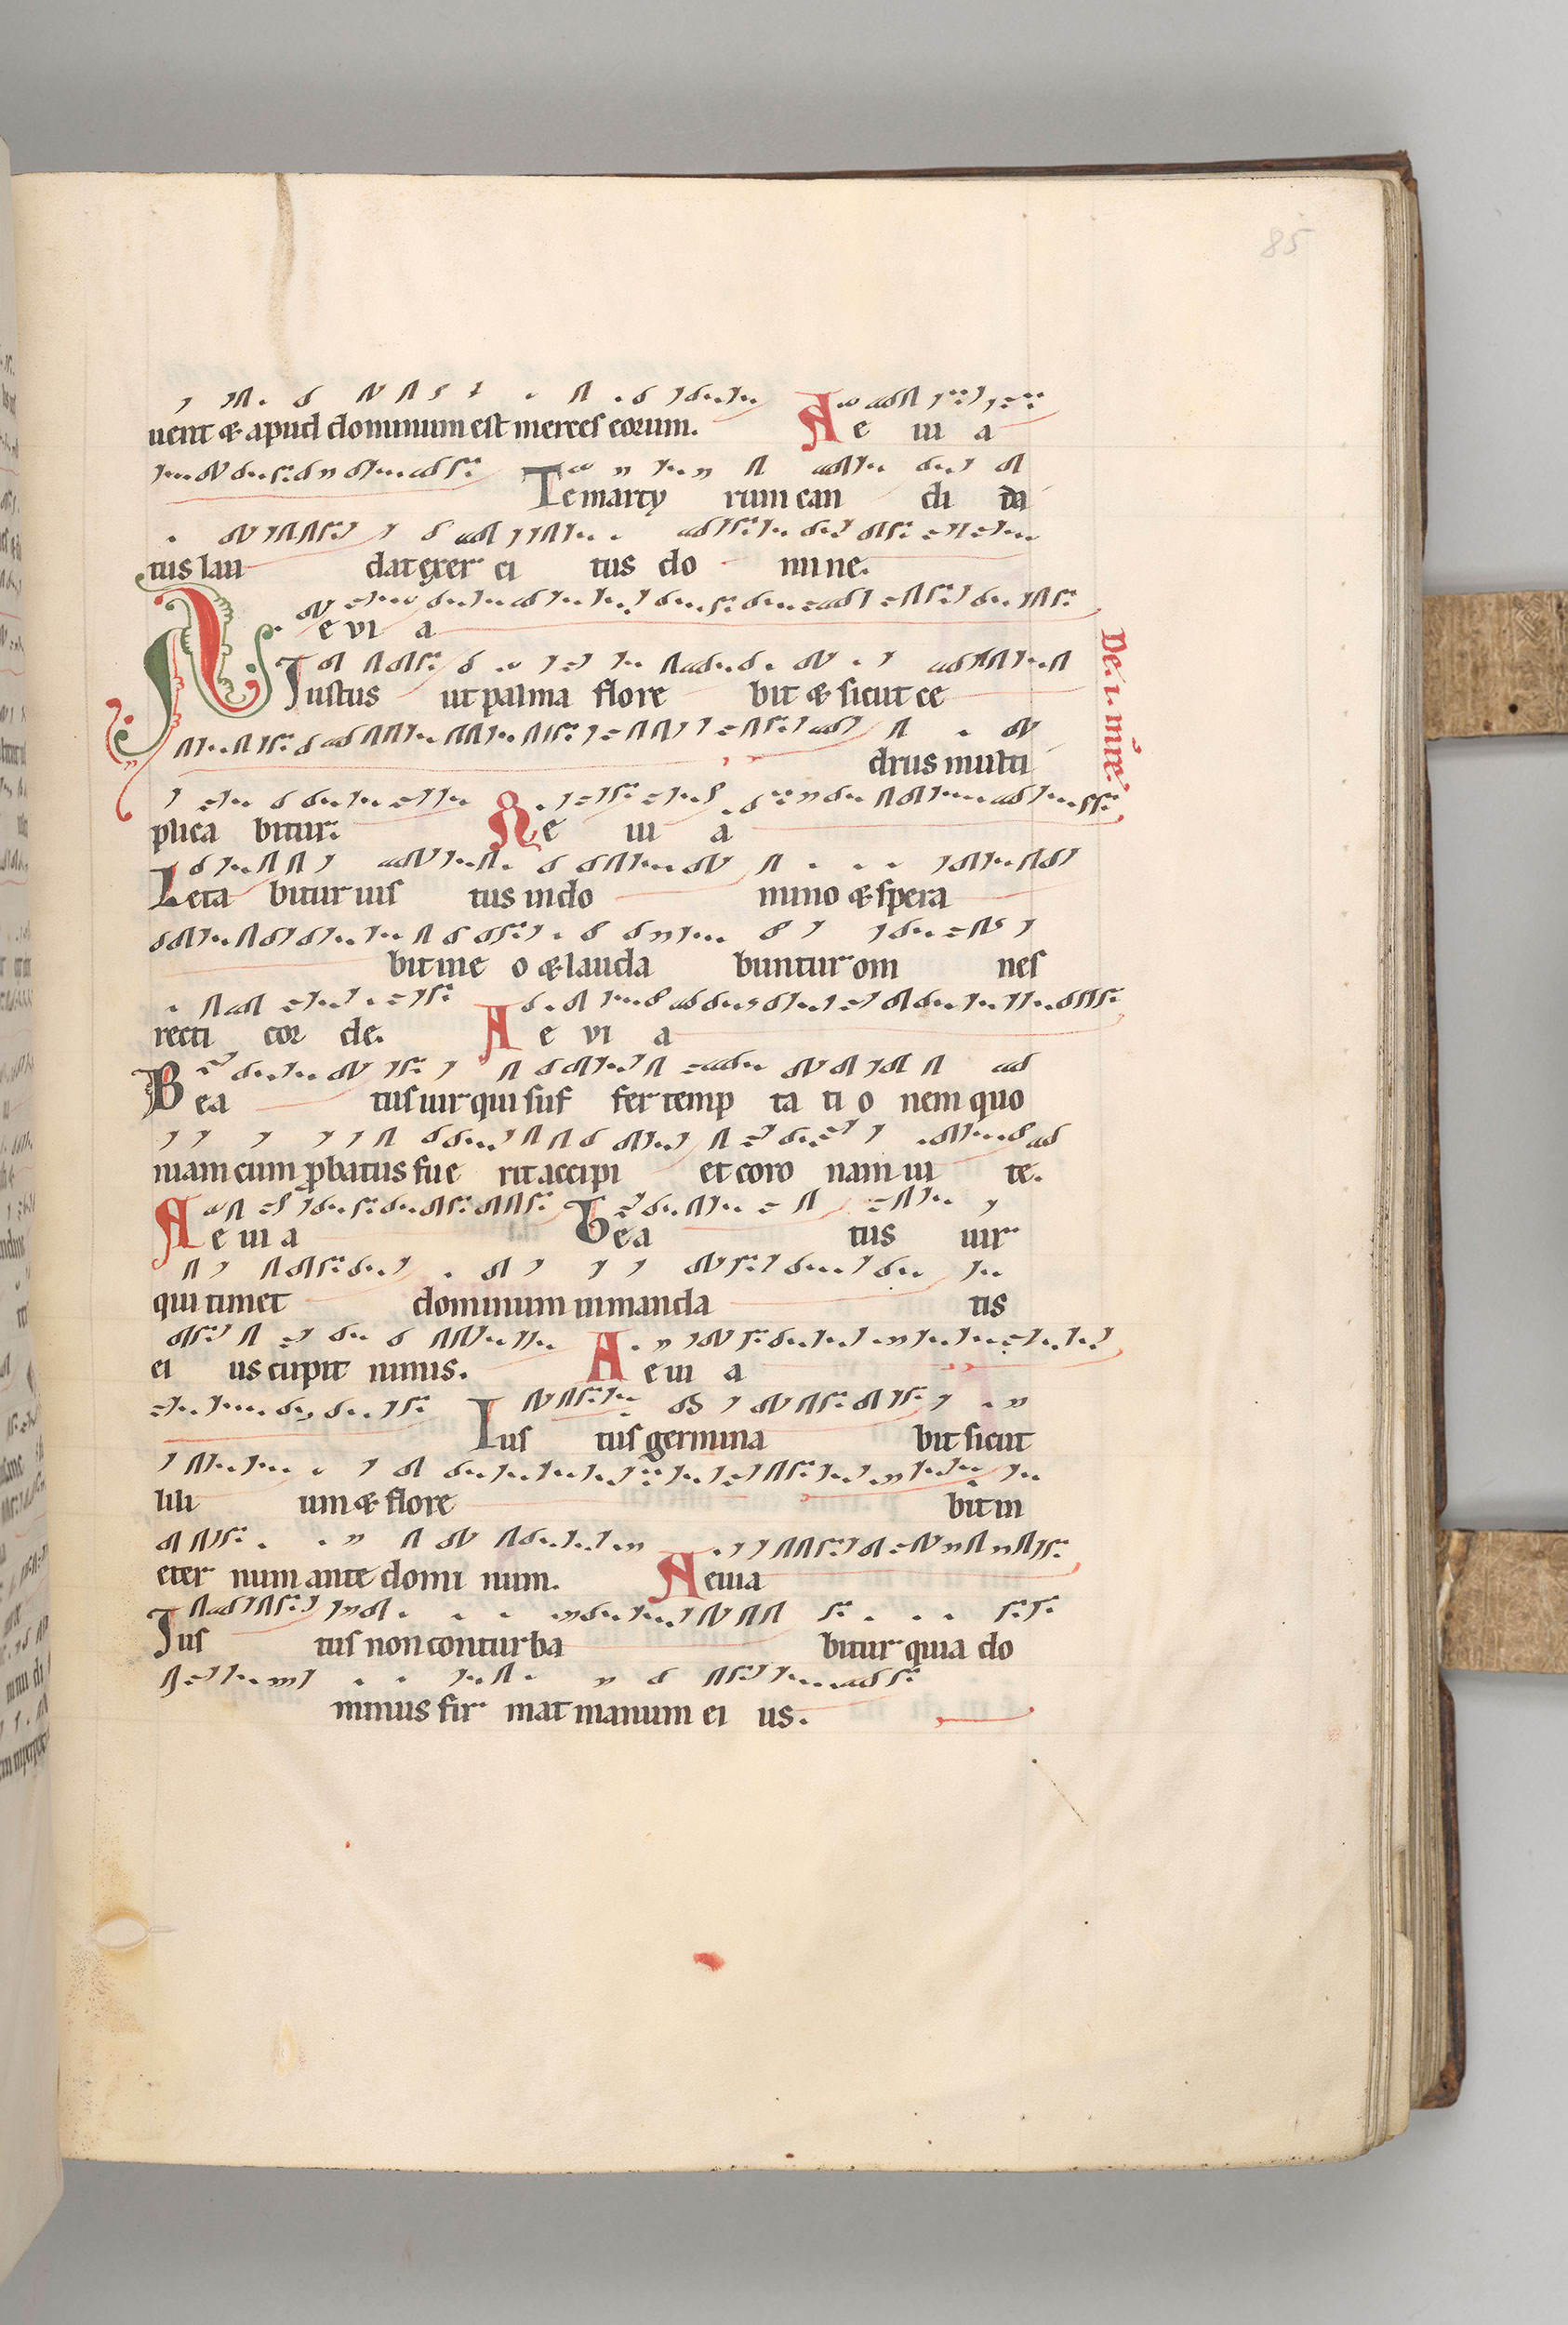 85
uent & apud dominum est merces eorum. A e ui a
Te marty rum can di da
tus lau dat exer ci tus do mi ne.
A e vi a
Iustus ut palma flore bit & sicut ce
drus multi
plica bitur. A e ui a
Leta bitur ius tus in do mino & spera
bit in e o & lauda buntur om nes
recti cor de. A e vi a
Bea tus uir qui suf fer temp ta ti o nem quo
niam cum probatus fue rit accipi et coro nam ui te.
A e ui a Bea tus uir
qui timet dominum in manda tis
ei us cupit nimis. A e ui a
Ius tus germina bit sicut
lili um & flore bit in
eter num ante domi num. A euia
Ius tus non conturba bitur quia do
minus fir mat manum ei us.
De .i. mr̄e.